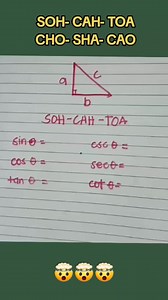 SOH- CAH- TOA
CHO- SHA- CAO
a c
b
SOH-CAH-TOA
sin θ = csc θ =
cos θ = sec θ =
tan θ = cot θ =